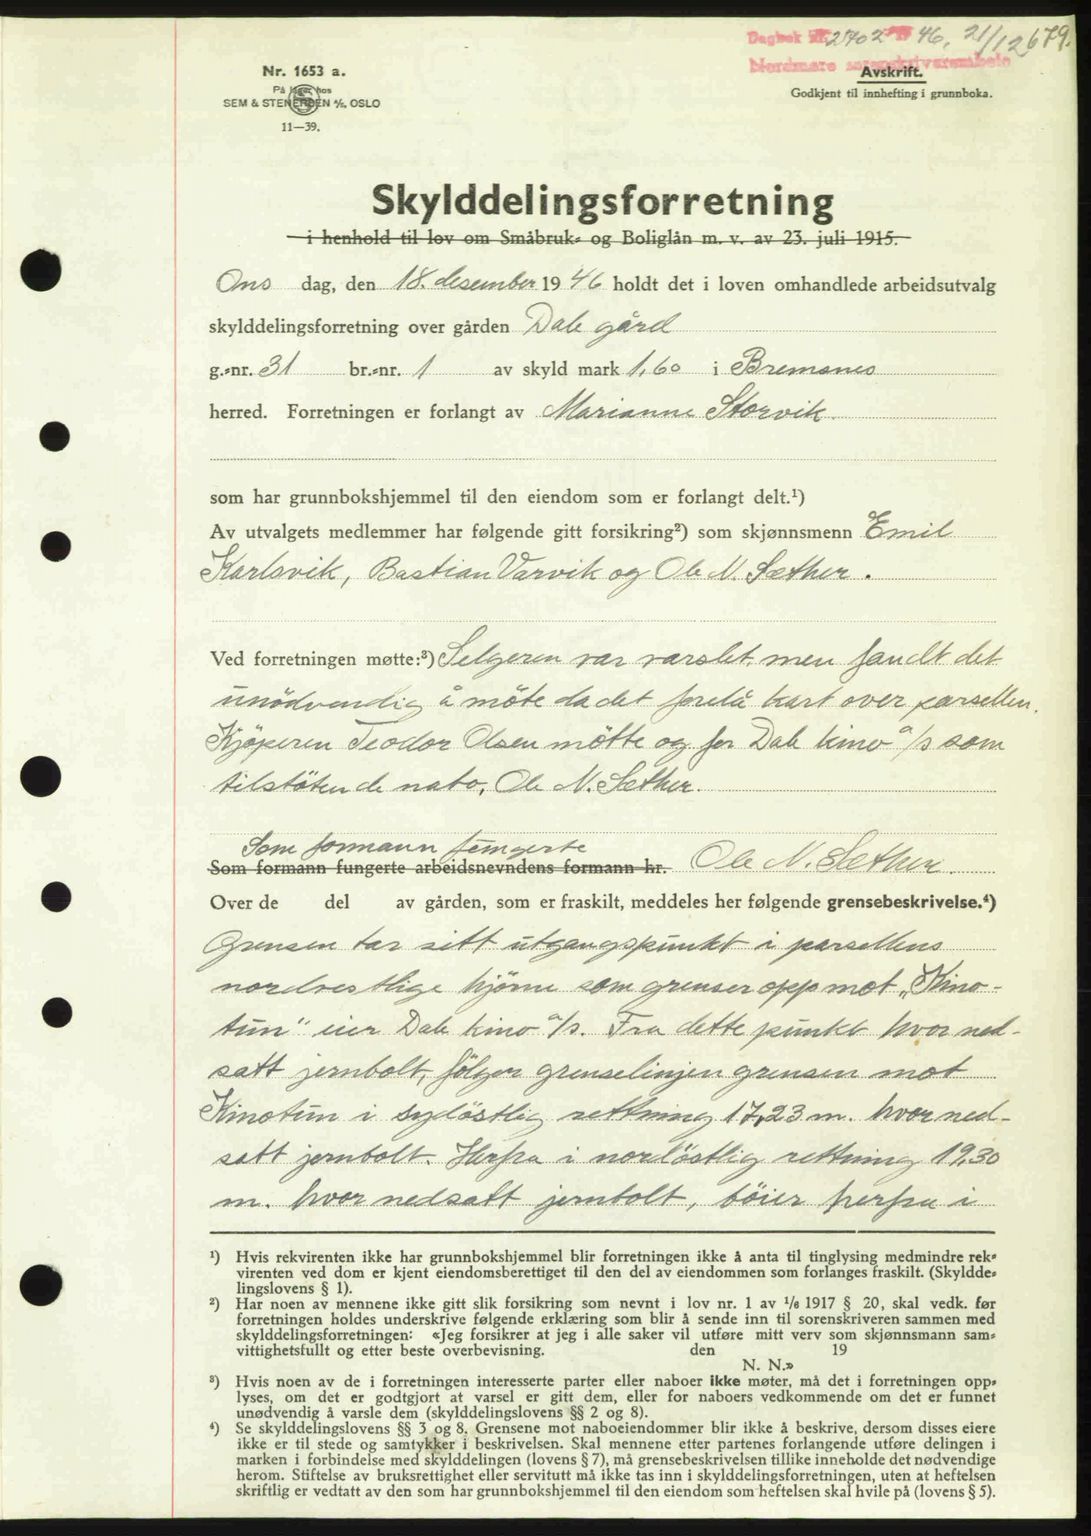 Dagbok nr. 2702 1946, 21/12 679.
Nordmøre sorenskriverembete
Nr. 1653 a.
På lager hos
SEM & STENERSEN A/S, OSLO
11—39.
Avskrift.
Godkjent til innhefting i grunnboka.
Skylddelingsforretning
i henhold til lov om Småbruk- og Boliglån m. v. av 23. juli 1915.
Ons dag, den 18. desember 1946 holdt det i loven omhandlede arbeidsutvalg
skylddelingsforretning over gården Dale gård
g.-nr. 31 br.-nr. 1 av skyld mark 1,60 i Bremsnes
herred. Forretningen er forlangt av Marianne Storvik.
som har grunnbokshjemmel til den eiendom som er forlangt delt.¹)
Av utvalgets medlemmer har følgende gitt forsikring²) som skjønnsmenn Emil
Karlsvik, Bastian Varvik og Ole N. Sæther.
Ved forretningen møtte:³) Selgeren var varslet, men fandt det
unödvendig å möte da det forelå kart over parsellen.
Kjöperen Teodor Olsen mötte og for Dale kino a/s som
tilstötende nabo, Ole N. Sæther.
Som formann fungerte
Som formann fungerte arbeidsnevndens formann hr. Ole N. Sæther.
Over de del av gården, som er fraskilt, meddeles her følgende grensebeskrivelse.⁴)
Grensen tar sitt utgangspunkt i parsellens
nordvestlige hjörne som grenser opp mot „Kino-
tun" eier Dale kino a/s. Fra dette punkt hvor ned-
satt jernbolt, fölger grenselinjen grensen mot
Kinotun i sydöstlig rettning 17,23 m. hvor ned-
satt jernbolt. Herfra i nordöstlig rettning 19,30
m. hvor nedsatt jernbolt, böier herfra i
¹) Hvis rekvirenten ikke har grunnbokshjemmel blir forretningen ikke å anta til tinglysing medmindre rek-
virenten ved dom er kjent eiendomsberettiget til den del av eiendommen som forlanges fraskilt. (Skyldde-
lingslovens § 1).
²) Har noen av mennene ikke gitt slik forsikring som nevnt i lov nr. 1 av ¹/₆ 1917 § 20, skal vedk. før
forretningen holdes underskrive følgende erklæring som blir å sende inn til sorenskriveren sammen med
skylddelingsforretningen: «Jeg forsikrer at jeg i alle saker vil utføre mitt verv som skjønnsmann sam-
vittighetsfullt og etter beste overbevisning. den 19
N. N.»
³) Hvis noen av de i forretningen interesserte parter eller naboer ikke møter, må det i forretningen opp-
lyses, om det er godtgjort at varsel er gitt dem, eller for naboers vedkommende om det er funnet
unødvendig å varsle dem (skylddelingslovens §§ 2 og 8).
⁴) Se skylddelingslovens §§ 3 og 8. Grensene mot naboeiendommer blir ikke å beskrive, dersom disses eiere
ikke er til stede og samtykker i beskrivelsen. Skal mennene etter partenes forlangende utføre delingen i
marken i forbindelse med skylddelingen (lovens § 7), må grensebeskrivelsen tillike inneholde det nødvendige
herom. Stiftelse av bruksrettighet eller servitutt må ikke tas inn i skylddelingsforretningen, uten at heftelsen
skriftlig er vedtatt av den som har grunnbokshjemmel til den eiendom som heftelsen skal hvile på (lovens § 5).